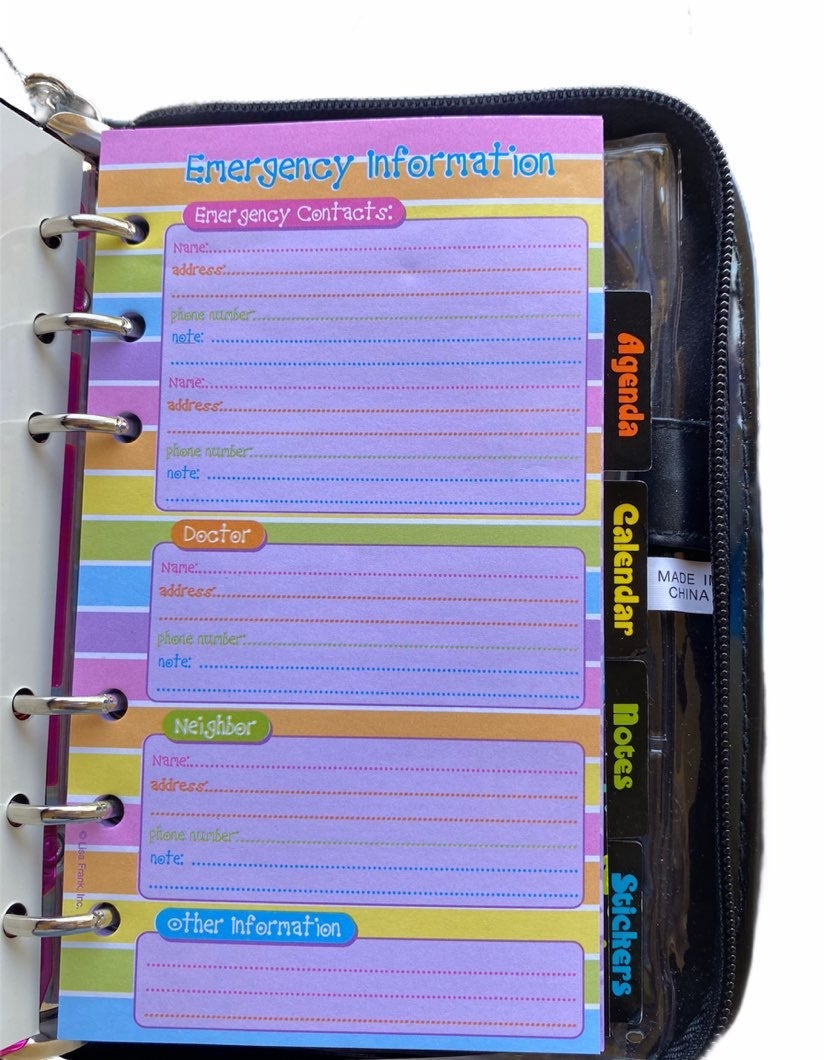 Emergency Information
Emergency Contacts:
Name:
address:
phone number:
note:
Name:
address:
phone number:
note:
Doctor
Name:
address:
phone number:
note:
Neighbor
Name:
address:
phone number:
note:
Other Information
© Lisa Frank, Inc.
Agenda
Calendar
Notes
Stickers
MADE IN
CHINA